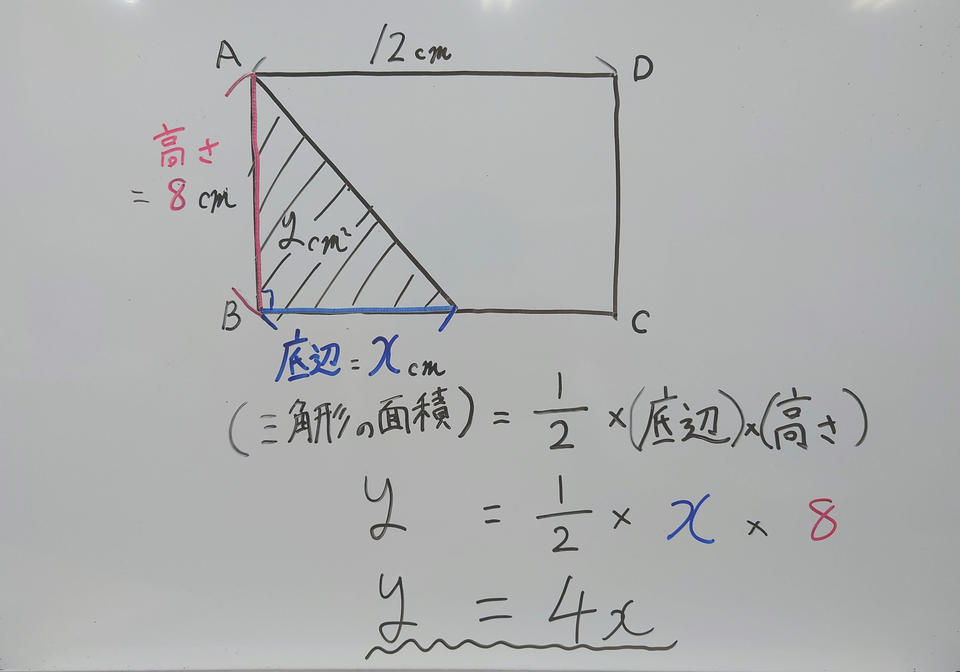 A 12cm D
高さ
= 8cm
ycm²
B C
底辺 = xcm
(三角形の面積) = 1/2 ×(底辺)×(高さ)
y = 1/2 × x × 8
y = 4x